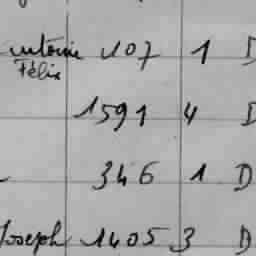 Antoine 107 1 D
Félix
1591 4 D
346 1 D
Joseph 1405 3 D